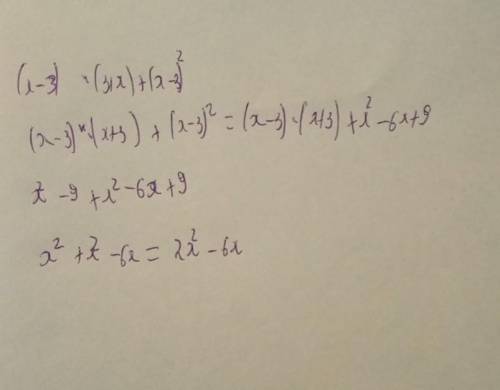 (x-3) · (3+x) + (x-3)²
(x-3)·(x+3) + (x-3)² = (x-3)·(x+3) + x² - 6x + 9
x² - 9 + x² - 6x + 9
x² + x² - 6x = 2x² - 6x